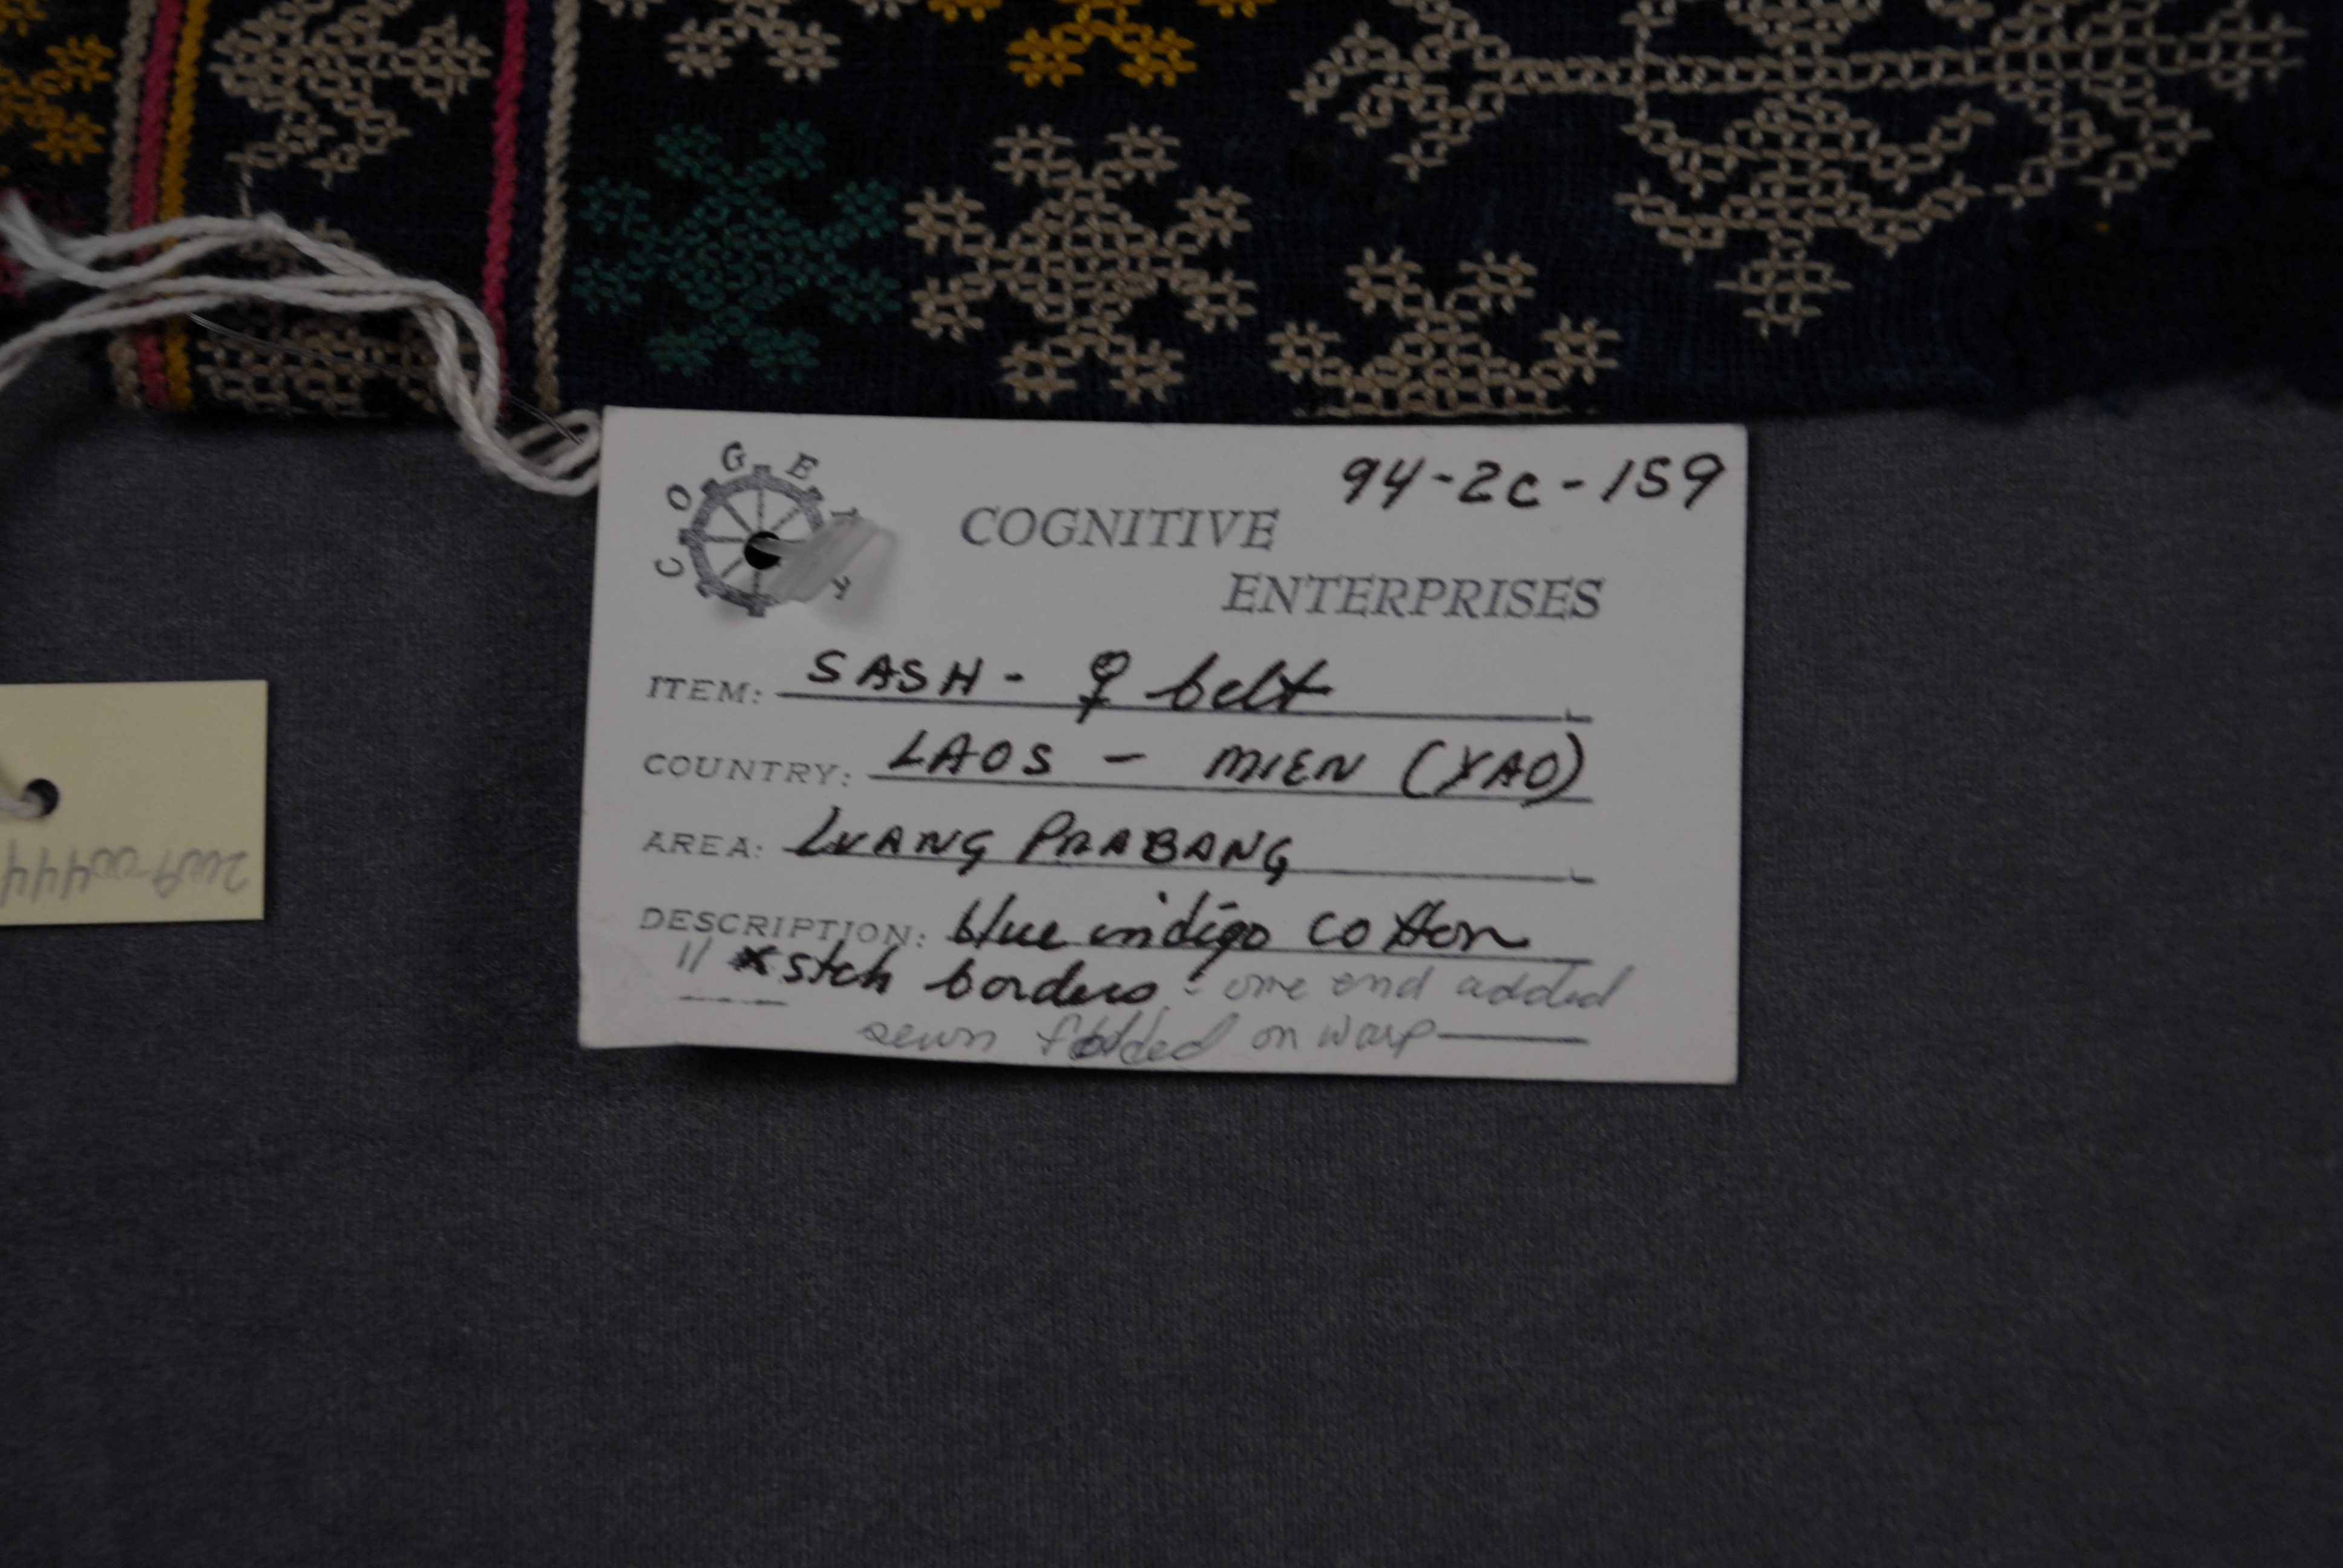 94-2c-159
COGE
COGNITIVE
ENTERPRISES
ITEM: SASH - ♀ belt
COUNTRY: LAOS - MIEN (YAO)
AREA: LUANG PRABANG
DESCRIPTION: blue indigo cotton
" x stch borders - one end added
sewn folded on warp
2009-00444